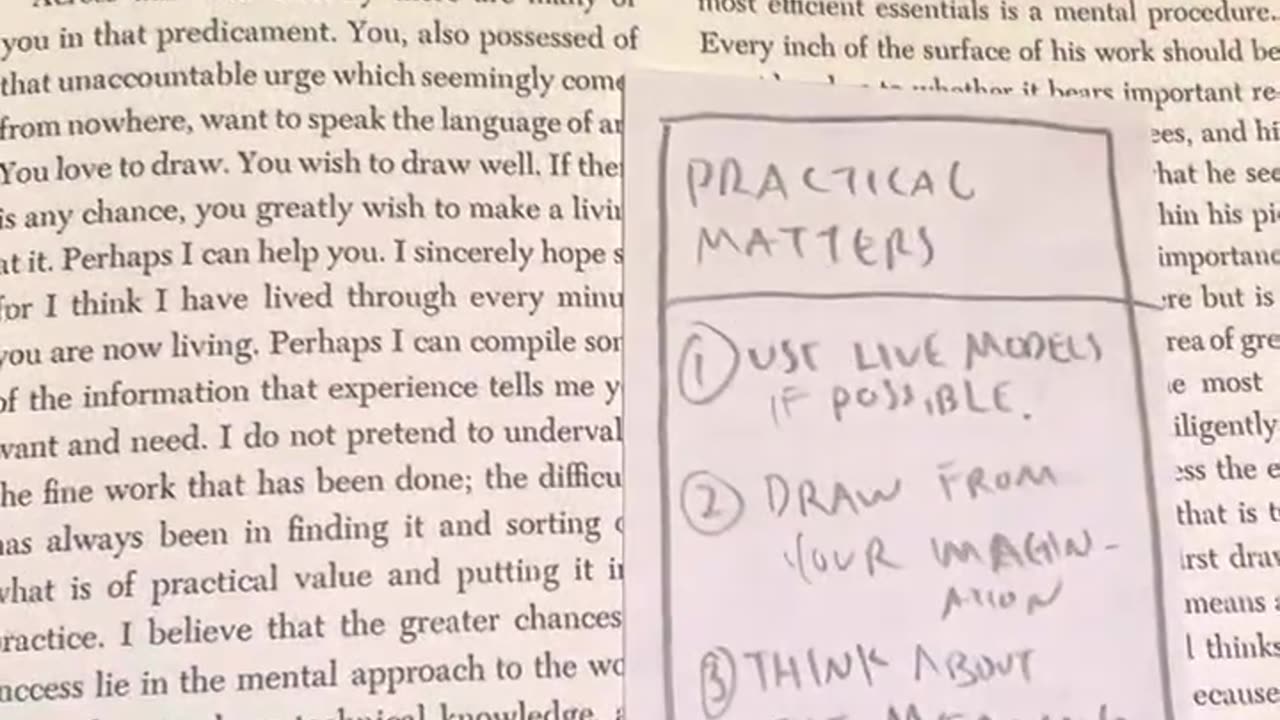 you in that predicament. You, also possessed of
that unaccountable urge which seemingly come
from nowhere, want to speak the language of ar
You love to draw. You wish to draw well. If the
is any chance, you greatly wish to make a livin
at it. Perhaps I can help you. I sincerely hope s
for I think I have lived through every minu
you are now living. Perhaps I can compile sor
of the information that experience tells me y
want and need. I do not pretend to underval
he fine work that has been done; the difficu
as always been in finding it and sorting
what is of practical value and putting it i
ractice. I believe that the greater chances
uccess lie in the mental approach to the wo
knowledge,
most efficient essentials is a mental procedure.
Every inch of the surface of his work should be
whether it bears important re-
ees, and hi
hat he see
hin his pi
importanc
re but is
rea of gre
e most
iligently
ess the e
that is t
rst draw
means a
l thinks
ecause
PRACTICAL
MATTERS
1 USE LIVE MODELS
IF POSSIBLE.
2 DRAW FROM
YOUR IMAGIN-
ATION
3 THINK ABOUT